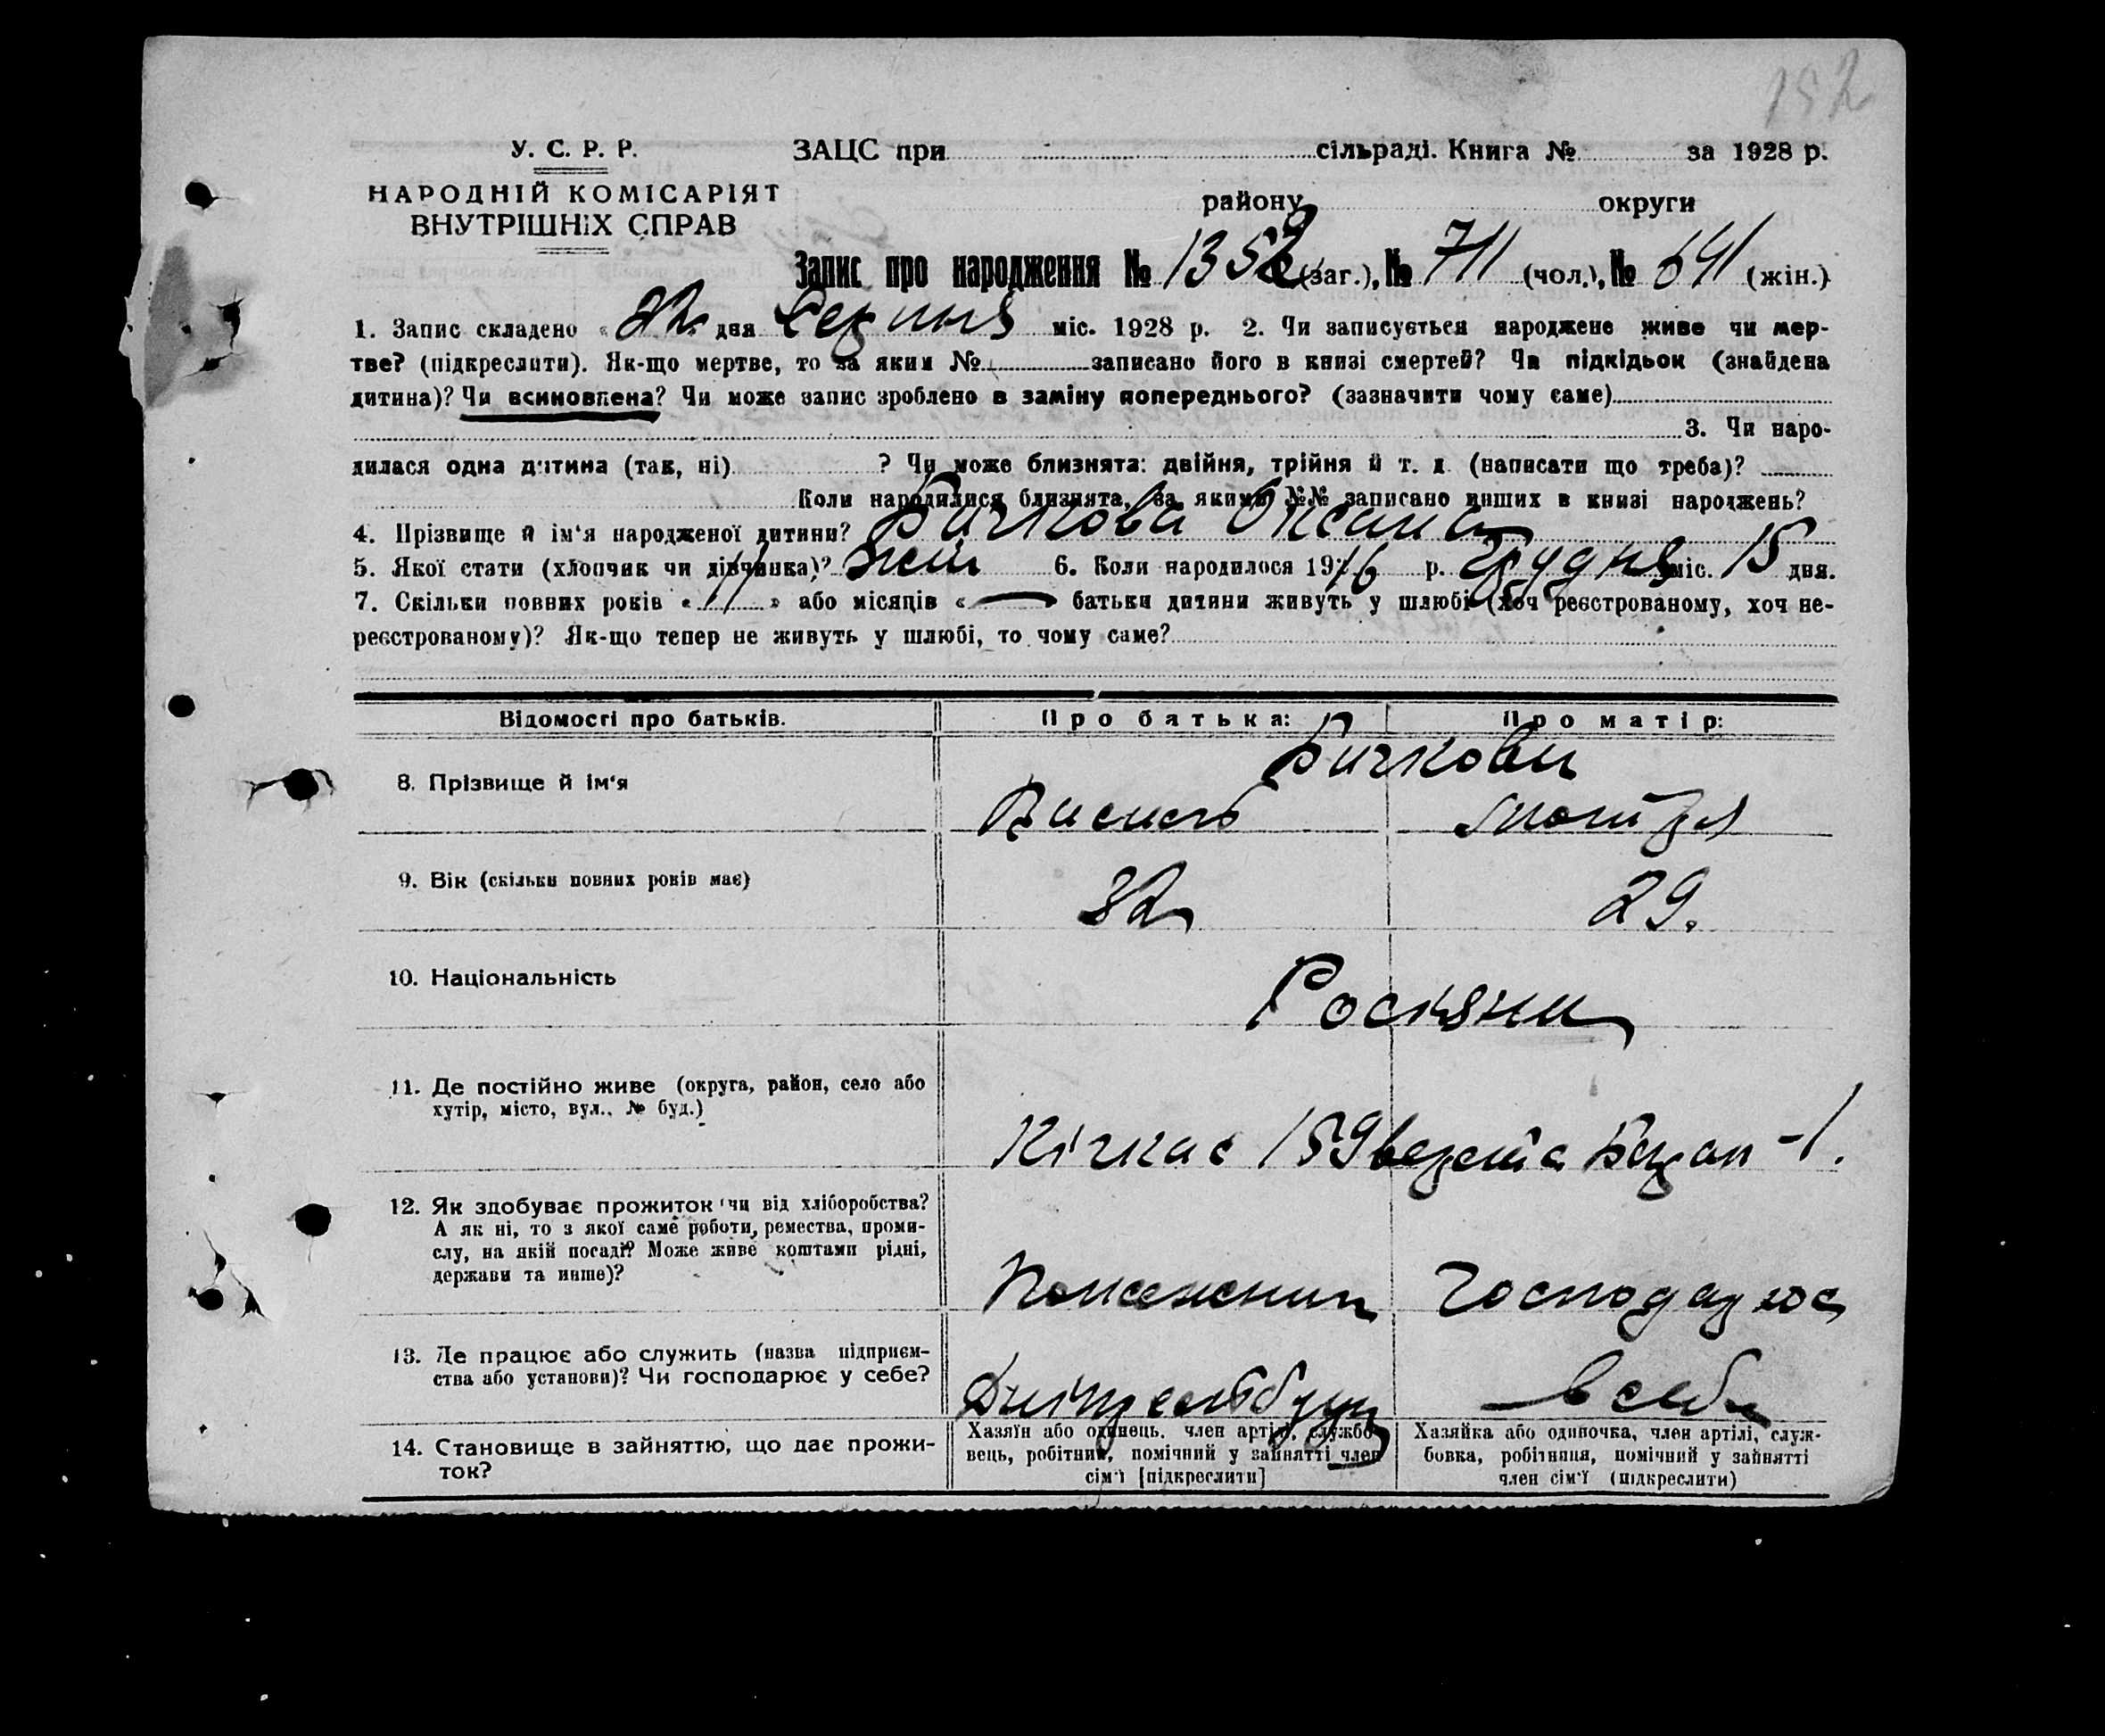 152
У. С. Р. Р.
НАРОДНІЙ КОМІСАРІЯТ
ВНУТРІШНІХ СПРАВ
ЗАЦС при сільраді. Книга № за 1928 р.
району округи
Запис про народження № 1352 (заг.), № 711 (чол.), № 641 (жін.)
1. Запис складено « 22 дня Серпня міс. 1928 р. 2. Чи записується народжене живе чи мер-
тве? (підкреслити). Як-що мертве, то за яким № записано його в книзі смертей? Чи підкідьок (знайдена
дитина)? Чи всиновлена? Чи може запис зроблено в заміну попереднього? (зазначити чому саме)
3. Чи наро-
дилася одна дитина (так, ні) ? Чи може близнята: двійня, трійня й т. д. (написати що треба)?
Коли народилися близнята, за якими №№ записано инших в книзі народжень?
4. Прізвище й ім‘я народженої дитини? Бичкова Оксана
5. Якої стати (хлопчик чи дівчинка)? жін 6. Коли народилося 1916 р. Грудня міс. 15 дня.
7. Скільки повних років « 11 » або місяців « — » батьки дитини живуть у шлюбі (хоч реєстрованому, хоч не-
реєстрованому)? Як-що тепер не живуть у шлюбі, то чому саме?
Відомості про батьків. Про батька: Про матір:
8. Прізвище й ім‘я Бичкови
Василь Мотря
9. Вік (скільки повних років має) 32 29.
10. Національність Росіяни
11. Де постійно живе (округа, район, село або
хутір, місто, вул., № буд.)
Кічкас 159 верста Барак -1.
12. Як здобуває прожиток чи від хліборобства?
А як ні, то з якої саме роботи, ремества, проми-
слу, на якій посаді? Може живе коштами рідні,
держави та инше)?
Пожежник Господарює
13. Де працює або служить (назва підприєм-
ства або установи)? Чи господарює у себе?
Дніпрельбуд в себе
14. Становище в зайняттю, що дає прожи-
ток?
Хазяїн або одинець, член артілі, службо-
вець, робітник, помічний у зайнятті член
сім‘ї [підкреслити]
Хазяйка або одиночка, член артілі, служ-
бовка, робітниця, помічний у зайнятті
член сім‘ї (підкреслити)